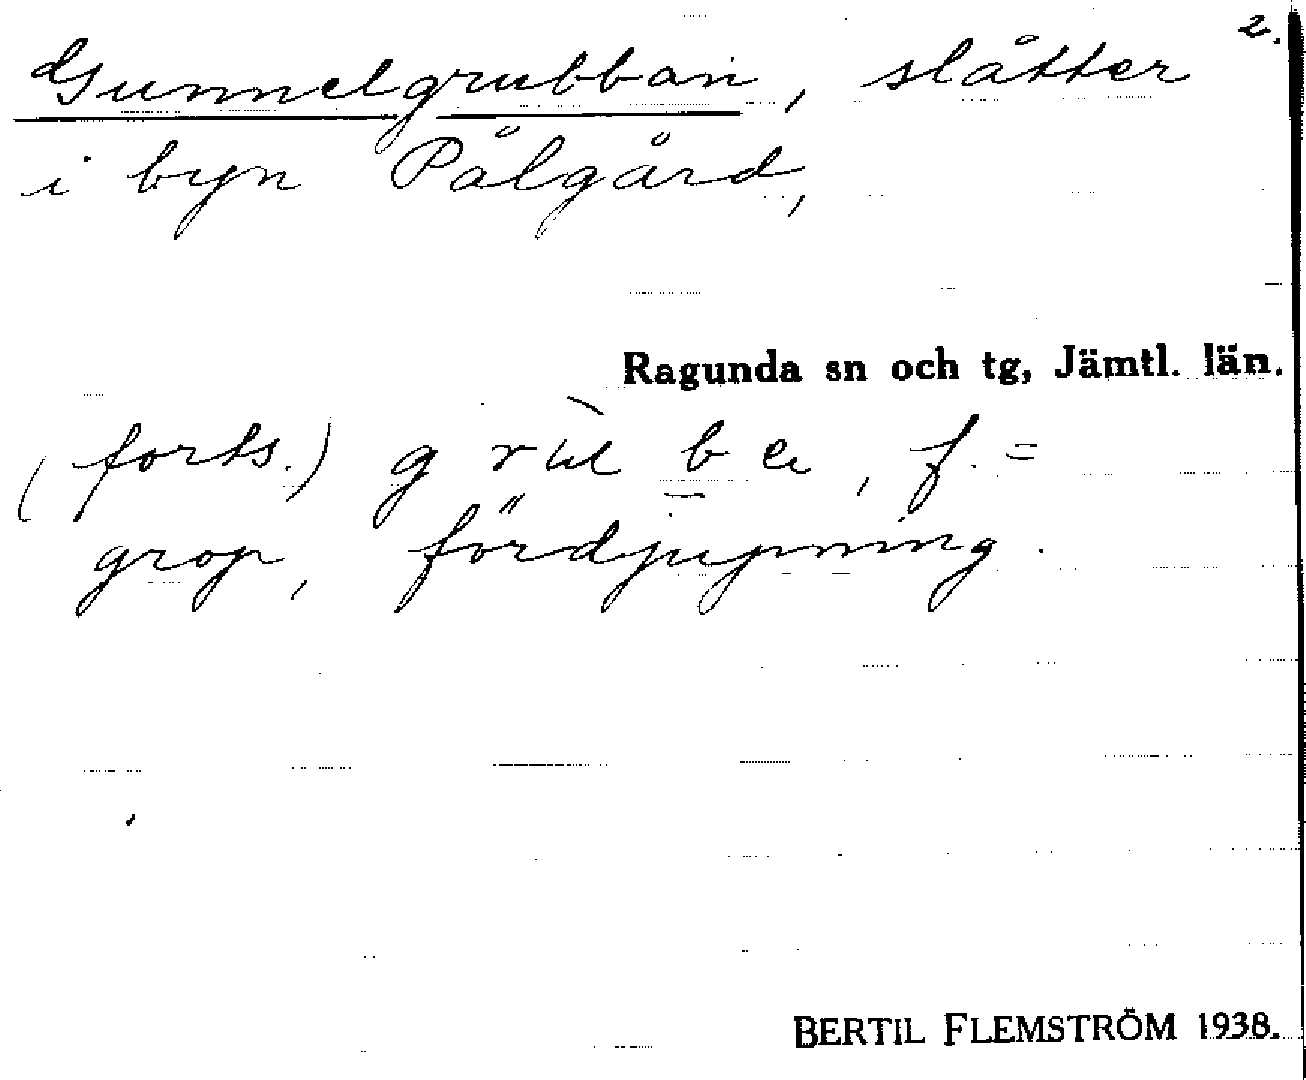 2.
Gunnelgrubban, slåtter
i byn Pålgård,
Ragunda sn och tg, Jämtl. län.
(forts.) f. =
grop, fördjupning.
BERTIL FLEMSTRÖM 1938.